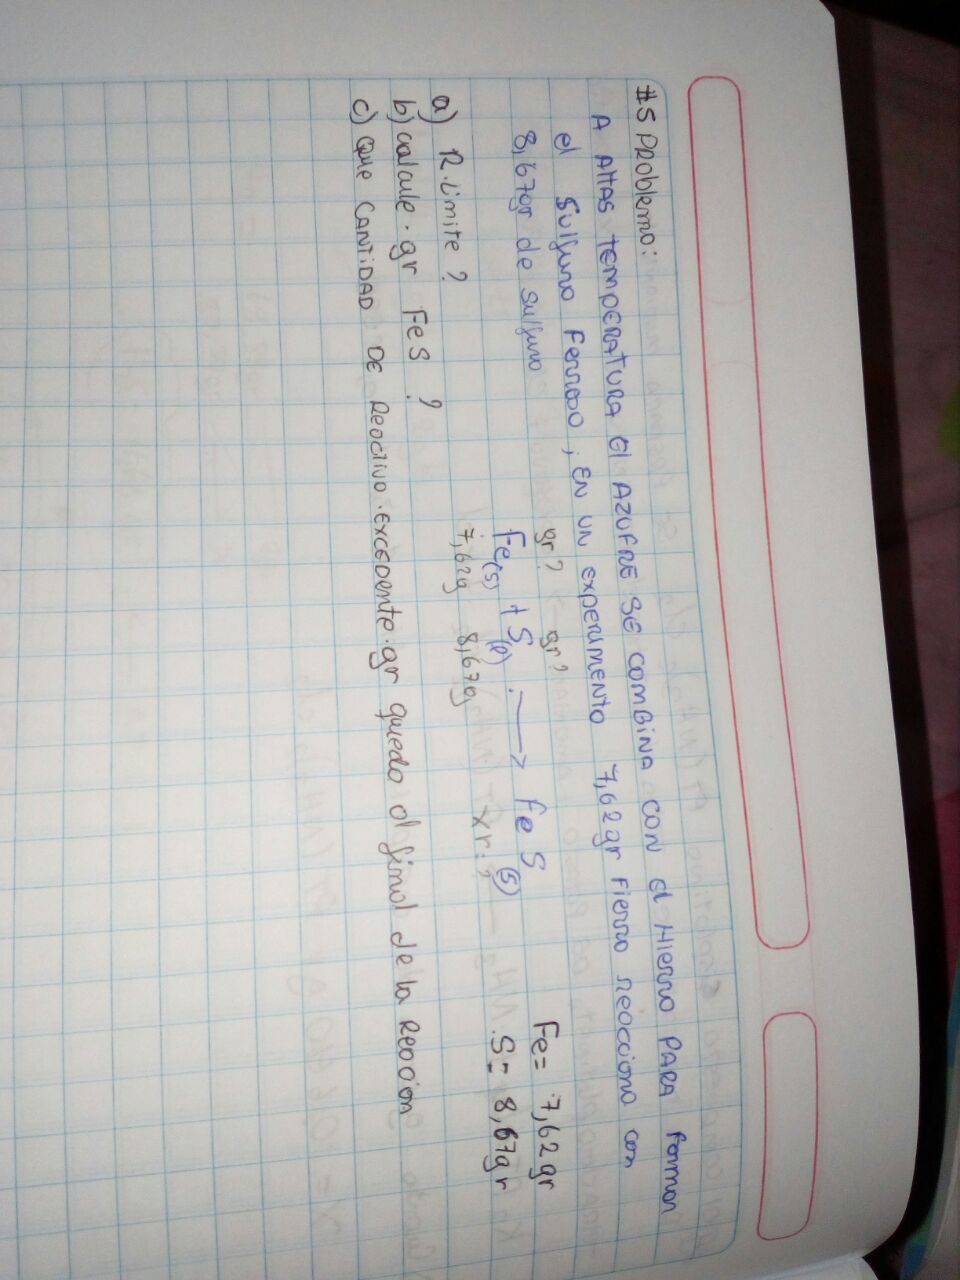 #5 PROBLEMA:
A ALTAS TEMPERATURA El AZUFRE SE COMBINA CON El HIERRO PARA formar
el Sulfuro Ferroso, EN UN experimento 7,62gr Fierro reacciona con
8,67gr de Sulfuro
gr? gr?
Fe(s) + S(l) → FeS(s) Fe= 7,62gr
7,62g 8,67g xr:? S= 8,67gr
a) R.Limite?
b) calcule.gr FeS?
c) Que CANTIDAD DE Reactivo.excedente.gr quedo al final de la Reacion